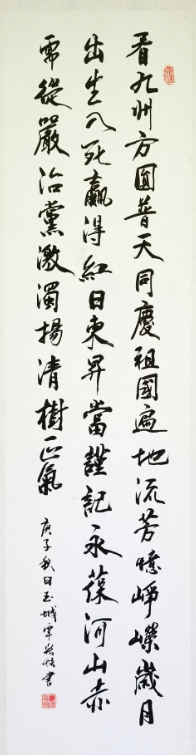 看九州方圆普天同慶祖國遍地流芳憶崢嶸歲月
出生入死贏得紅日東昇當謹記永葆河山赤
需從嚴治黨激濁揚清樹正氣
庚子秋日玉城書